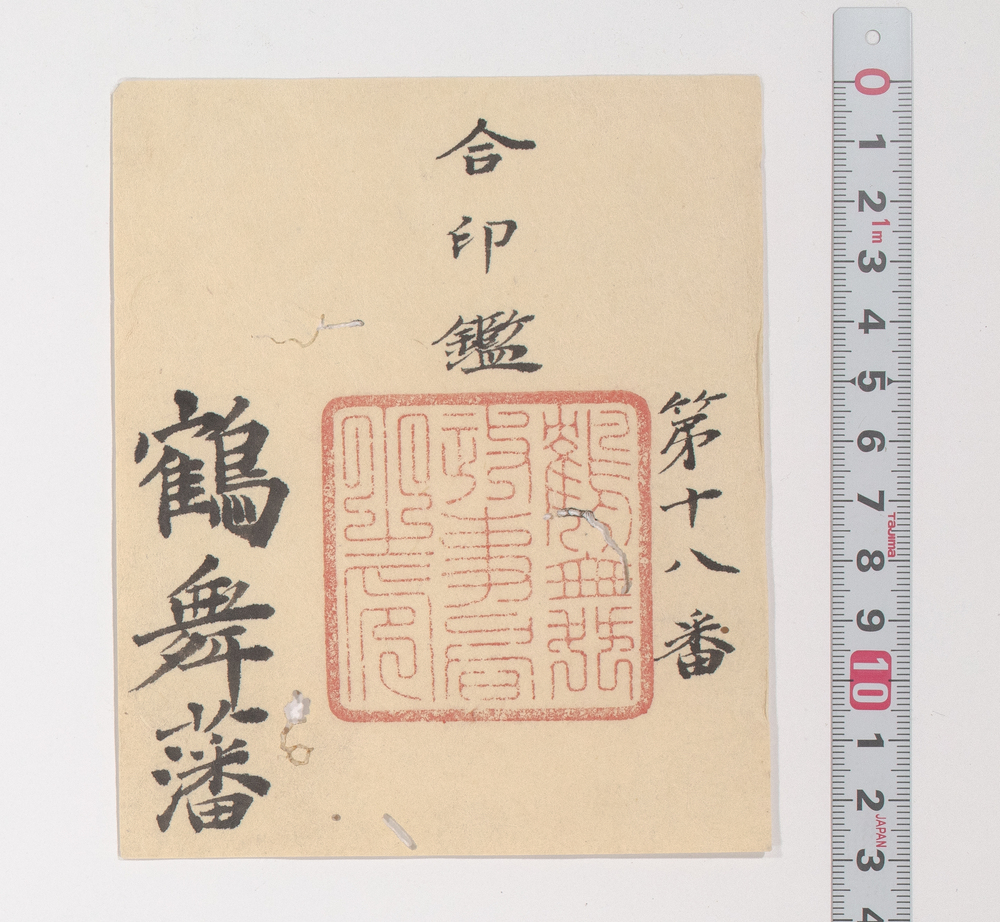 第十八番
合印鑑
鶴舞藩
0
1
2
1m
3
4
5
6
7
Tajima
8
9
10
1
2
JAPAN
3
4